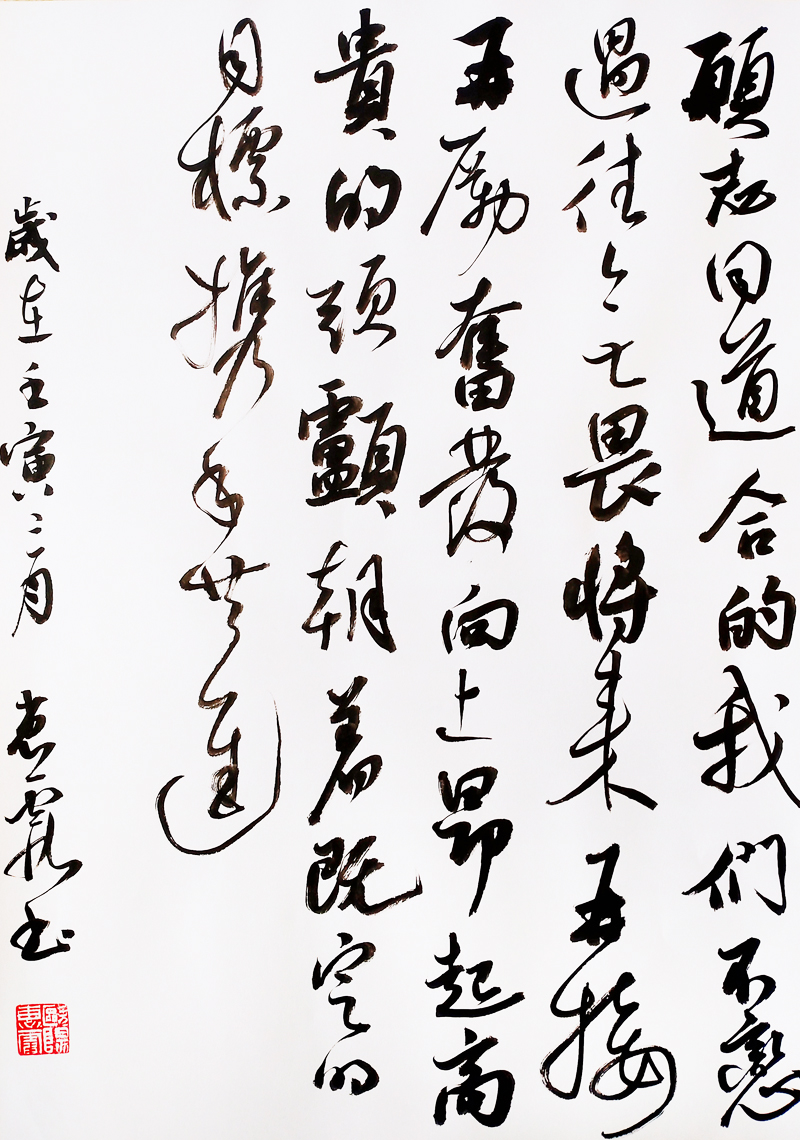 願志同道合的我們不戀
過往畏將來再接
再励奮發向上昂起高
貴的頭顱朝着既定的
目標携手共進
歲在壬寅二月 惠霞書